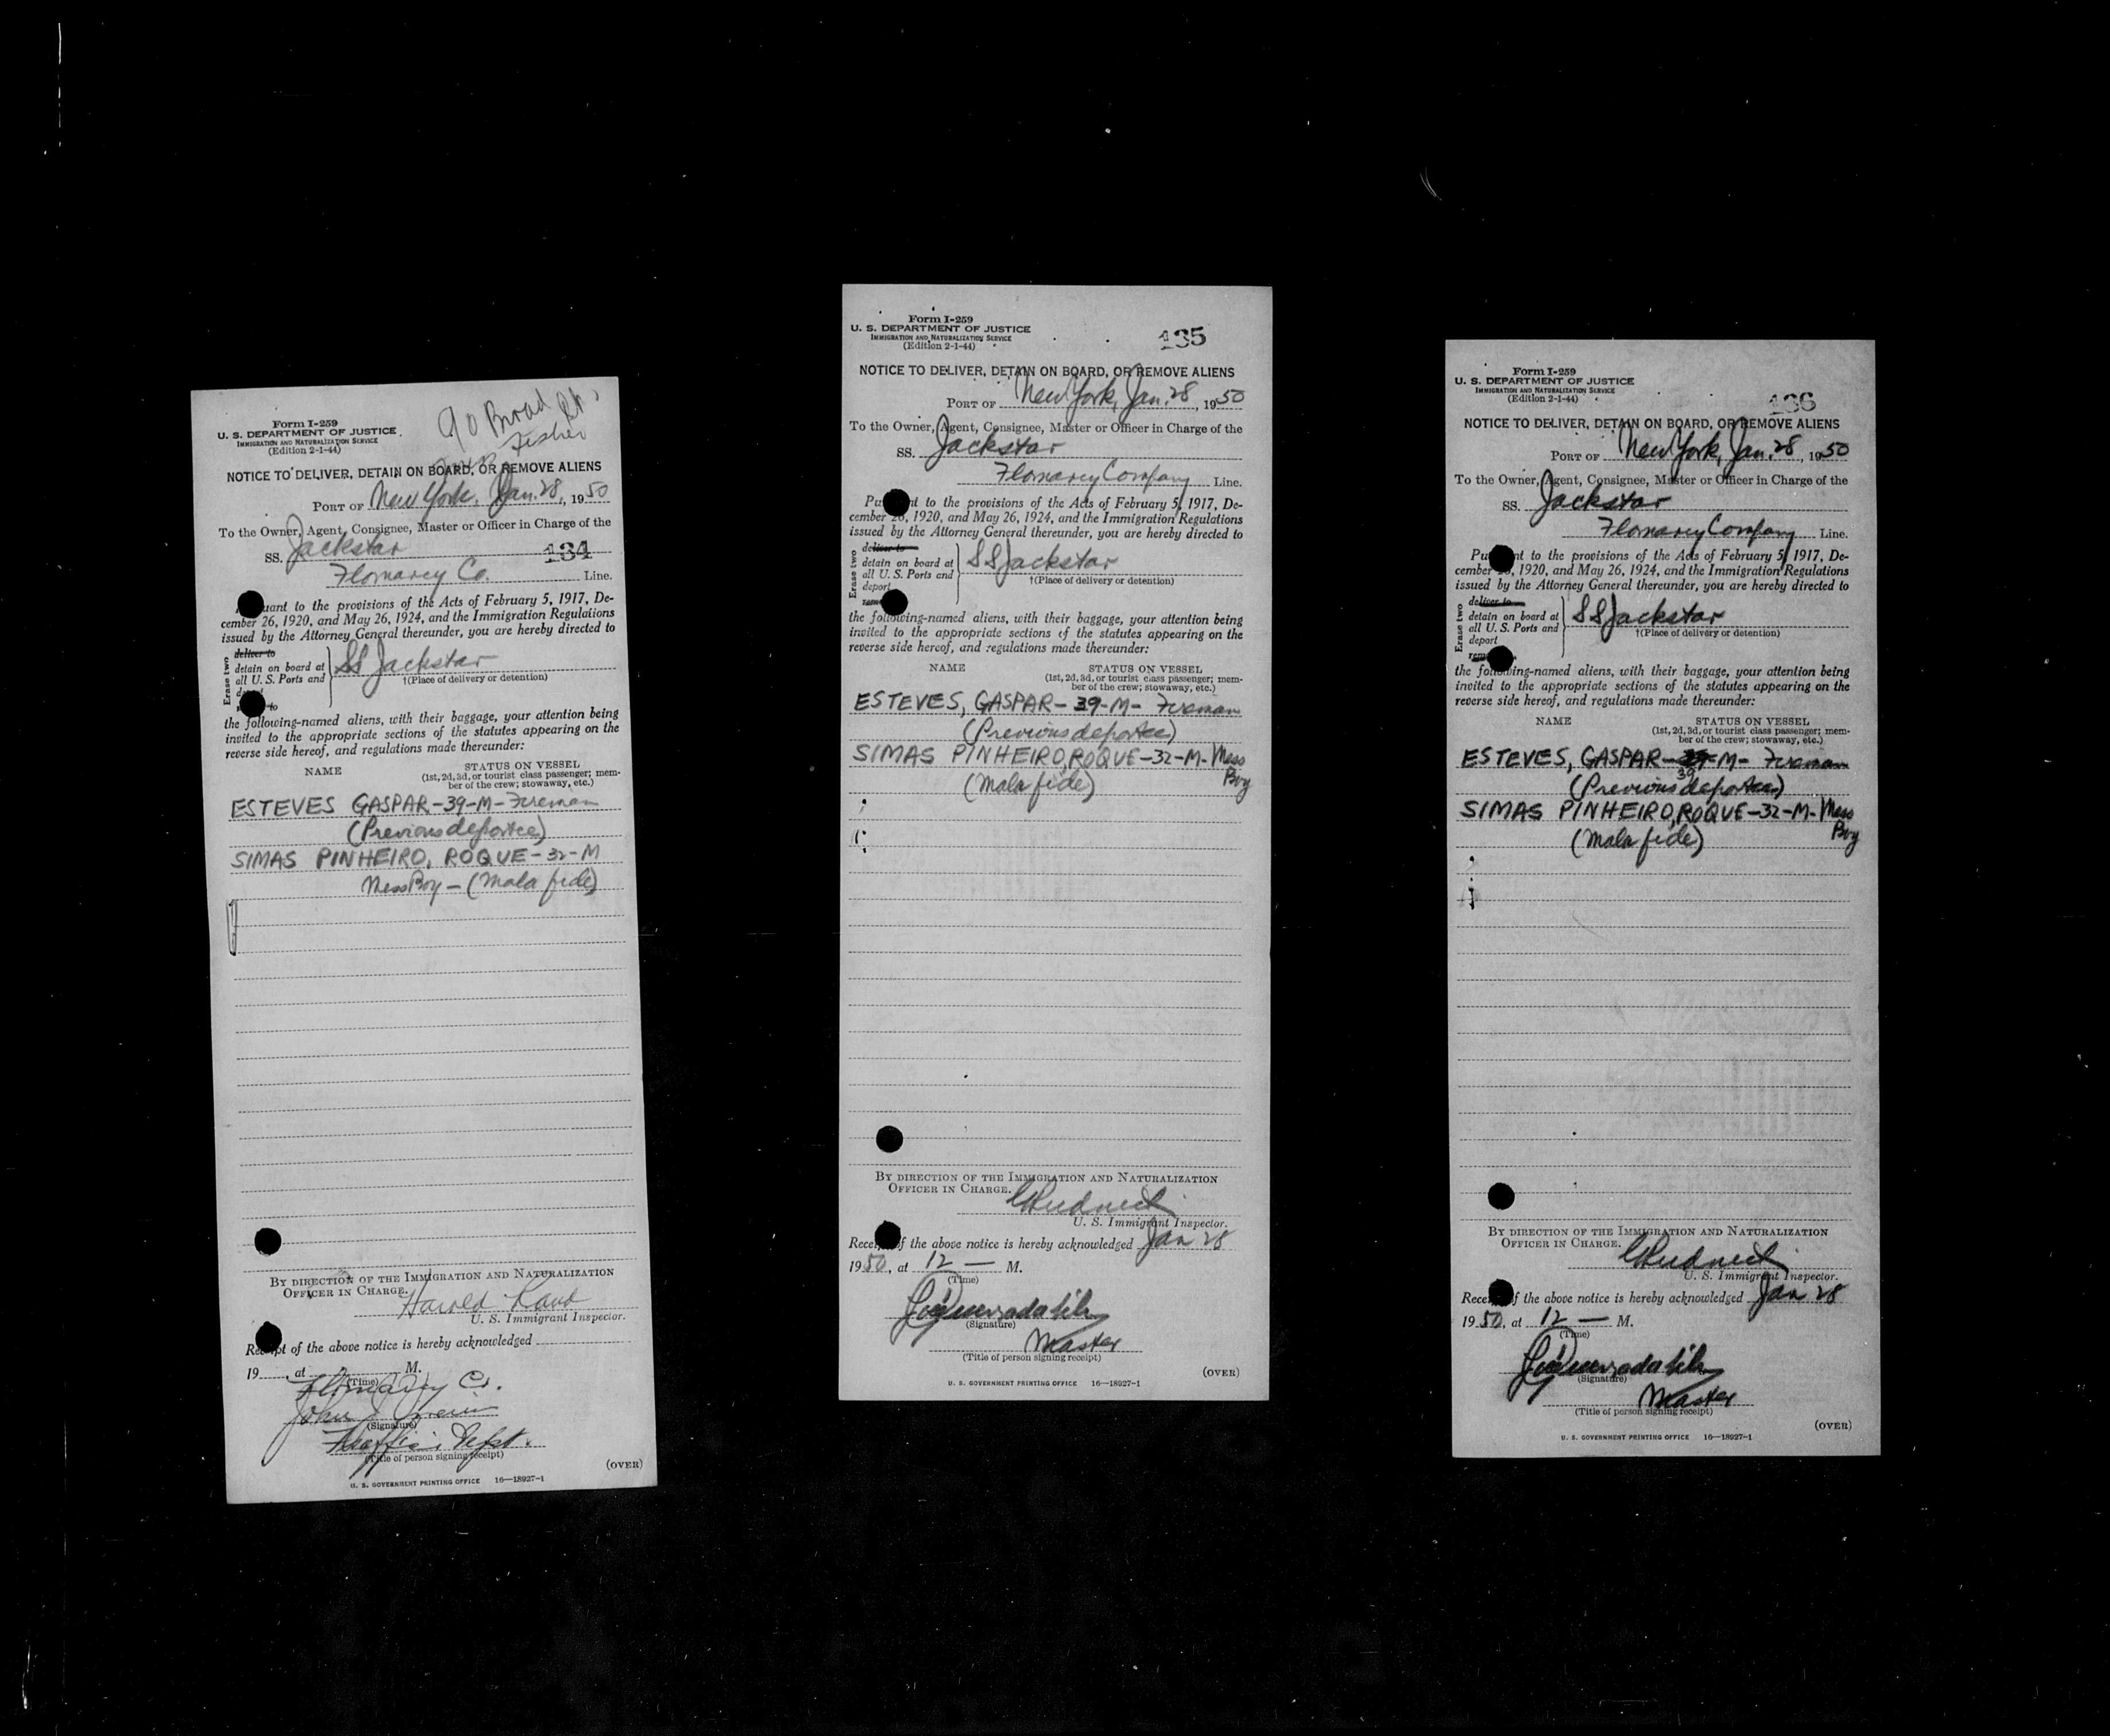 90 Broad St.
Fisher
Form I-259
U. S. DEPARTMENT OF JUSTICE
IMMIGRATION AND NATURALIZATION SERVICE
(Edition 2-1-44)
NOTICE TO DELIVER, DETAIN ON BOARD, OR REMOVE ALIENS
PORT OF New York, Jan. 28, 1950
To the Owner, Agent, Consignee, Master or Officer in Charge of the
SS. Jackstar 134
Flomarcy Co. Line.
uant to the provisions of the Acts of February 5, 1917, De-
cember 26, 1920, and May 26, 1924, and the Immigration Regulations
issued by the Attorney General thereunder, you are hereby directed to
Erase two
deliver to
detain on board at
all U. S. Ports and
to
SS Jackstar
†(Place of delivery or detention)
the following-named aliens, with their baggage, your attention being
invited to the appropriate sections of the statutes appearing on the
reverse side hereof, and regulations made thereunder:
NAME STATUS ON VESSEL
(1st, 2d, 3d, or tourist class passenger; mem-
ber of the crew; stowaway, etc.)
ESTEVES GASPAR-39-M-Fireman
(Previous deportee)
SIMAS PINHEIRO, ROQUE-32-M
MessBoy-(Mala fide)
BY DIRECTION OF THE IMMIGRATION AND NATURALIZATION
OFFICER IN CHARGE.
Harold
U. S. Immigrant Inspector.
Receipt of the above notice is hereby acknowledged
19 , at M.
(Time)
Flomarcy Co.
John J.
(Signature)
Traffic Dept.
(Title of person signing receipt)
(OVER)
U. S. GOVERNMENT PRINTING OFFICE 16—18927-1
Form I-259
U. S. DEPARTMENT OF JUSTICE
IMMIGRATION AND NATURALIZATION SERVICE
(Edition 2-1-44)
135
NOTICE TO DELIVER, DETAIN ON BOARD, OR REMOVE ALIENS
PORT OF New York, Jan. 28, 1950
To the Owner, Agent, Consignee, Master or Officer in Charge of the
SS. Jackstar
Flomarcy Company Line.
Pu nt to the provisions of the Acts of February 5, 1917, De-
cember 26, 1920, and May 26, 1924, and the Immigration Regulations
issued by the Attorney General thereunder, you are hereby directed to
Erase two
deliver to
detain on board at
all U. S. Ports and
deport
SS Jackstar
†(Place of delivery or detention)
the following-named aliens, with their baggage, your attention being
invited to the appropriate sections of the statutes appearing on the
reverse side hereof, and regulations made thereunder:
NAME STATUS ON VESSEL
(1st, 2d, 3d, or tourist class passenger; mem-
ber of the crew; stowaway, etc.)
ESTEVES, GASPAR-39-M-Fireman
(Previous deportee)
SIMAS PINHEIRO, ROQUE-32-M-Mess
Boy
(Mala fide)
BY DIRECTION OF THE IMMIGRATION AND NATURALIZATION
OFFICER IN CHARGE.
U. S. Immigrant Inspector.
Recei f the above notice is hereby acknowledged Jan 28
1950, at 12 — M.
(Time)
(Signature)
Master
(Title of person signing receipt)
(OVER)
U. S. GOVERNMENT PRINTING OFFICE 16—18927-1
Form I-259
U. S. DEPARTMENT OF JUSTICE
IMMIGRATION AND NATURALIZATION SERVICE
(Edition 2-1-44)
136
NOTICE TO DELIVER, DETAIN ON BOARD, OR REMOVE ALIENS
PORT OF New York, Jan. 28, 1950
To the Owner, Agent, Consignee, Master or Officer in Charge of the
SS. Jackstar
Flomarcy Company Line.
Pu nt to the provisions of the Acts of February 5, 1917, De-
cember 26, 1920, and May 26, 1924, and the Immigration Regulations
issued by the Attorney General thereunder, you are hereby directed to
Erase two
deliver to
detain on board at
all U. S. Ports and
deport
SS Jackstar
†(Place of delivery or detention)
the following-named aliens, with their baggage, your attention being
invited to the appropriate sections of the statutes appearing on the
reverse side hereof, and regulations made thereunder:
NAME STATUS ON VESSEL
(1st, 2d, 3d, or tourist class passenger; mem-
ber of the crew; stowaway, etc.)
ESTEVES, GASPAR-39-M-Fireman
(Previous deportee)
SIMAS PINHEIRO, ROQUE-32-M-Mess
Boy
(Mala fide)
BY DIRECTION OF THE IMMIGRATION AND NATURALIZATION
OFFICER IN CHARGE.
U. S. Immigrant Inspector.
Recei f the above notice is hereby acknowledged Jan 28
1950, at 12 — M.
(Time)
(Signature)
Master
(Title of person signing receipt)
(OVER)
U. S. GOVERNMENT PRINTING OFFICE 16—18927-1